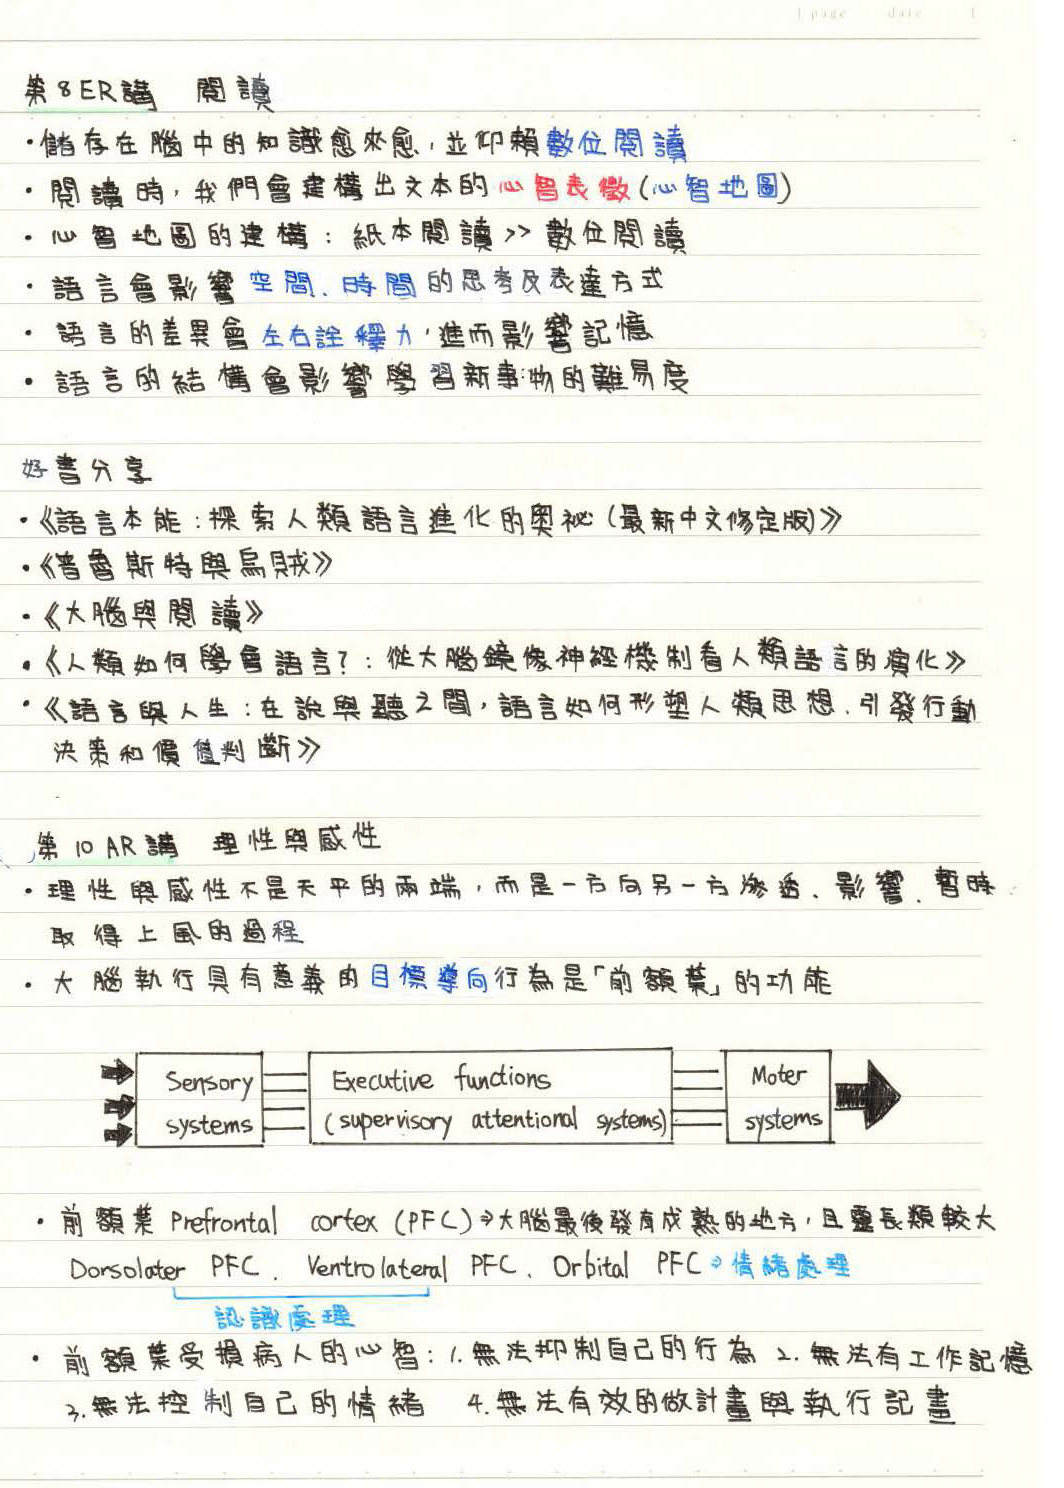 page date
第8ER講 閱讀
・儲存在腦中的知識愈來愈，並仰賴數位閱讀
・閱讀時，我們會建構出文本的心智表徵(心智地圖)
・心智地圖的建構：紙本閱讀>>數位閱讀
・語言會影響空間、時間的思考及表達方式
・語言的差異會左右詮釋力，進而影響記憶
・語言的結構會影響學習新事物的難易度
好書分享
・《語言本能：探索人類語言進化的奧祕(最新中文修定版)》
・《普魯斯特與烏賊》
・《大腦與閱讀》
・《人類如何學會語言?：從大腦鏡像神經機制看人類語言的演化》
・《語言與人生：在說與聽之間，語言如何形塑人類思想、引發行動
決策和價值判斷》
第10AR講 理性與感性
・理性與感性不是天平的兩端，而是一方向另一方滲透、影響、暫時
取得上風的過程
・大腦執行具有意義的目標導向行為是「前額葉」的功能
Sensory systems
Executive functions (supervisory attentional systems)
Moter systems
・前額葉 Prefrontal cortex (PFC)→大腦最後發育成熟的地方，且靈長類較大
Dorsolater PFC、Ventrolateral PFC、Orbital PFC→情緒處理
認識處理
・前額葉受損病人的心智：1.無法抑制自己的行為 2.無法有工作記憶
3.無法控制自己的情緒 4.無法有效的做計畫與執行記畫